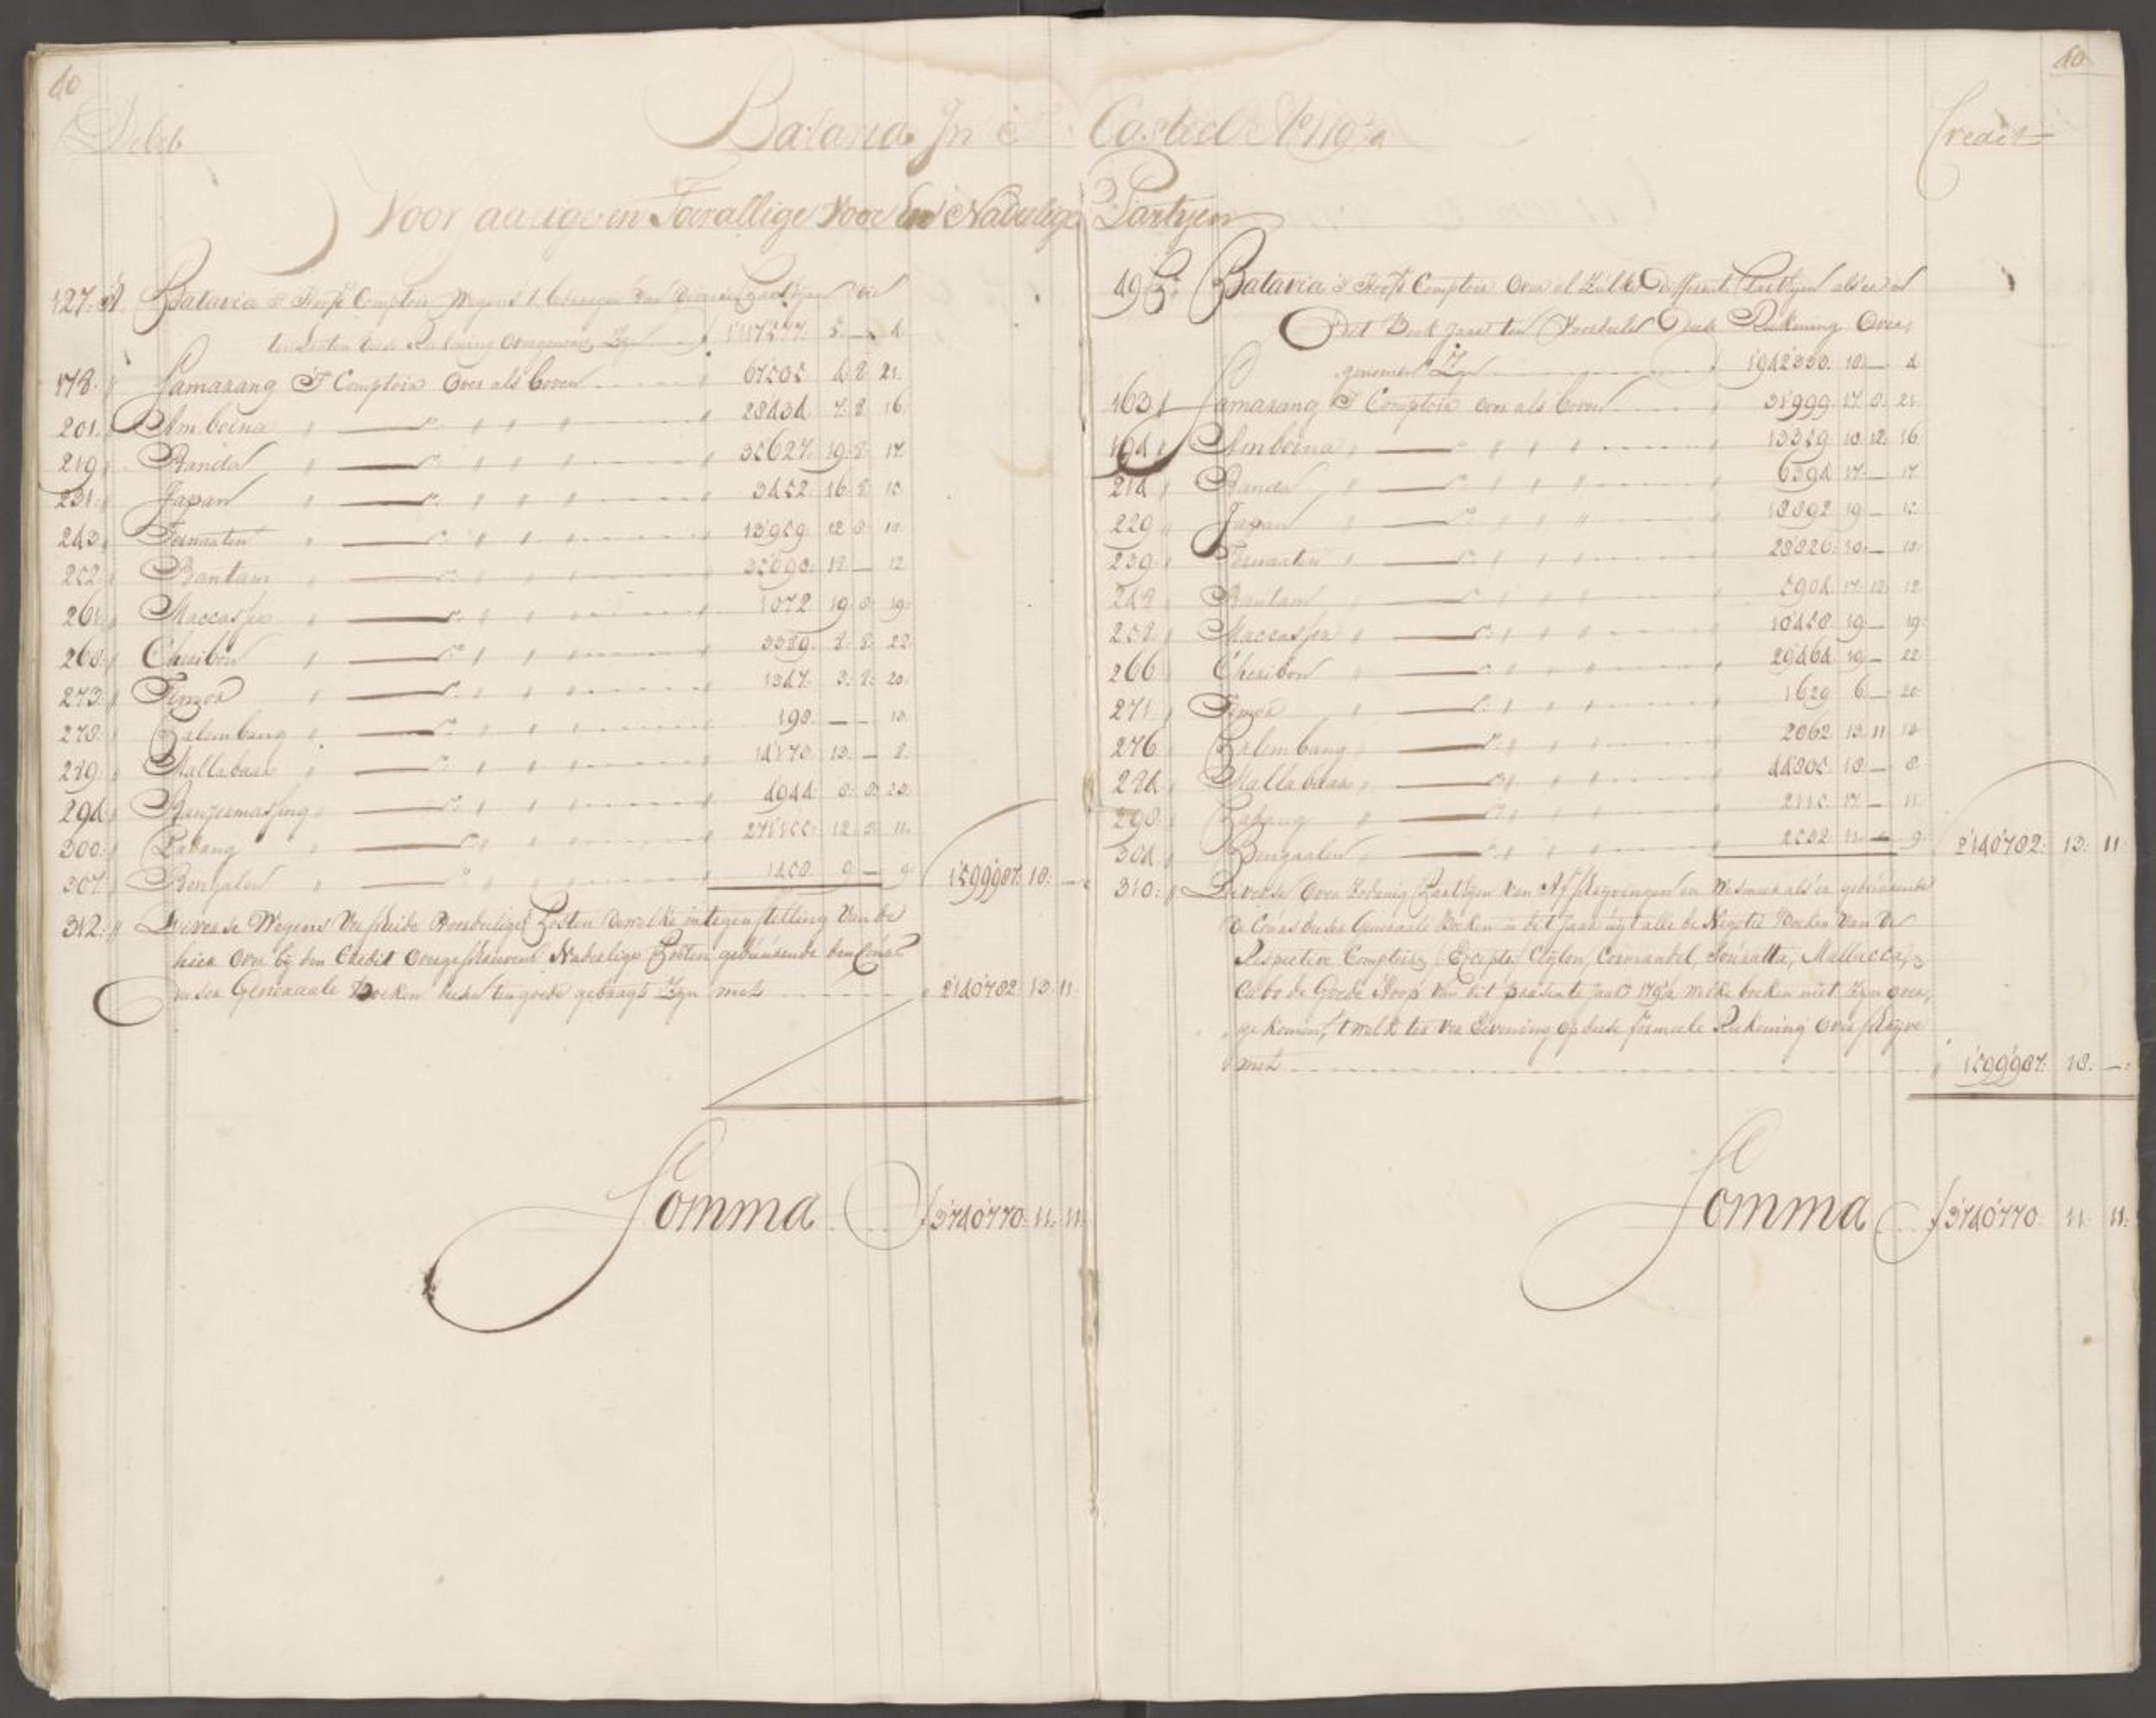 40
Debet
Batavia In 't
Voorjaarige en Toevallige Voor en Nadeelige
127. A Batavia 's Hooft Comptoir Wegens 't bedragen van Partijen die
ten Lasten deese Reekening Zijn 5. — 4
178. Samarang 'T Comptoir Over als boven 67505 4. 8. 21.
201. Amboina 28434 7. 8. 16.
219. Banda 35627. 19. 8. 17.
231. Japan 3452. 16. 8. 15
243. Ternaten 13959 12 8 18
252. Bantam 35690. 18 — 12
261. Maccasser 1072 19 8 19
268. Cheribon 3389. 8. 8. 22
273. Timor 1347. 3. 8. 20
278. Palembang 198. — — 18.
289. Mallabaar 14173. 13. — 8.
294. Banjermassing 4944 8. 8. 23.
300. Padang 12. 8. 11.
307. Bengalen 1458. 9 — 9 1599987. 18. —
312. Diverse Wegens Verscheide Voordeelige Posten Dewelke in tegenstelling van de
hier Over bij den Credit Overgeschreven Nadeelige Posten geduurende den
deeser Generaale Boeken ten goede gebragt Zijn met 2140782 13. 11.
Somma f 3740770. 11. 11.
40
Casteel Ao 1792
Credit
Partijen
49 Batavia 's Hooft Comptoir Over al Zulke Differente Partijen als er in
Dit Boek Jaar ten Voordeele Deese Reekening Over,,
genomen Zijn 1942330. 18. — 4
163 Samarang 'T Comptoir over als boven 31999. 17. 8. 21
194 Amboina 13359 10. 12. 16.
214 Banda 6394 17. — 17
229 Japan 18892 19 — 15
239 Ternaten 28826. 10. — 18
248 Bantam 5904 17. 12. 12.
258. Maccasser 10458 19 — 19.
266 Cheribon 29464 19 — 22
271 Timor 1629 6. — 20
276 Palembang 2062 13. 11 18
284 Mallabaar 44305. 18 — 8
298. Padang 2115. 17. — 11
304 Bengaalen — 9. 2140782. 13. 11
310. Diverse Over Zodanige Partijen van Afschrijvingen en als er geduurende
deeser Generaale Boeken in dit Jaar uijt alle de Negotie Boeken van de
Respective Comptoirs, Excepto Ceijlon, Cormandel, Souratta, Mallacca, &
Cabo de Goede Hoop van dit presente Jaar 1792 welke boeken niet Zijn over,,
gekomen, 't welk ter Vereevening op deese formeele Reekening Overschrijve
met 1599987. 18. —
Somma f 3740770 11. 11.